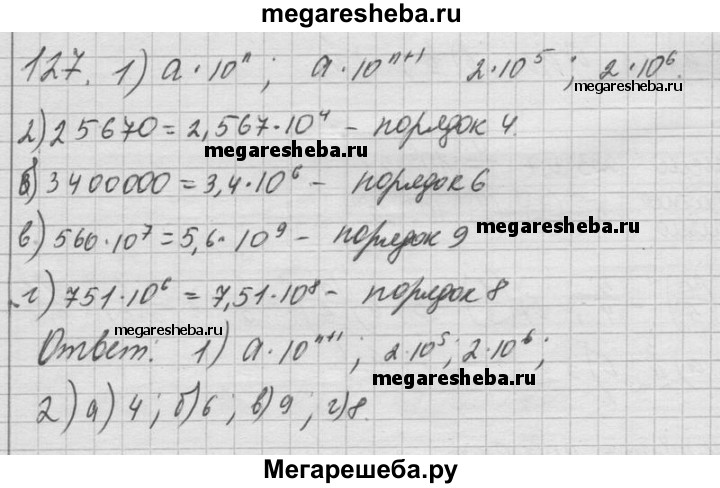 megaresheba.ru
127. 1) a·10ⁿ; a·10ⁿ⁺¹ 2·10⁵; 2·10⁶.
megaresheba.ru
2) 25670 = 2,567·10⁴ – порядок 4.
megaresheba.ru
б) 3400000 = 3,4·10⁶ – порядок 6
в) 560·10⁷ = 5,6·10⁹ – порядок 9
megaresheba.ru
г) 751·10⁶ = 7,51·10⁸ – порядок 8
megaresheba.ru
Ответ: 1) a·10ⁿ⁺¹; 2·10⁵; 2·10⁶;
megaresheba.ru
2) а) 4; б) 6; в) 9; г) 8.
Мегарешеба.ру